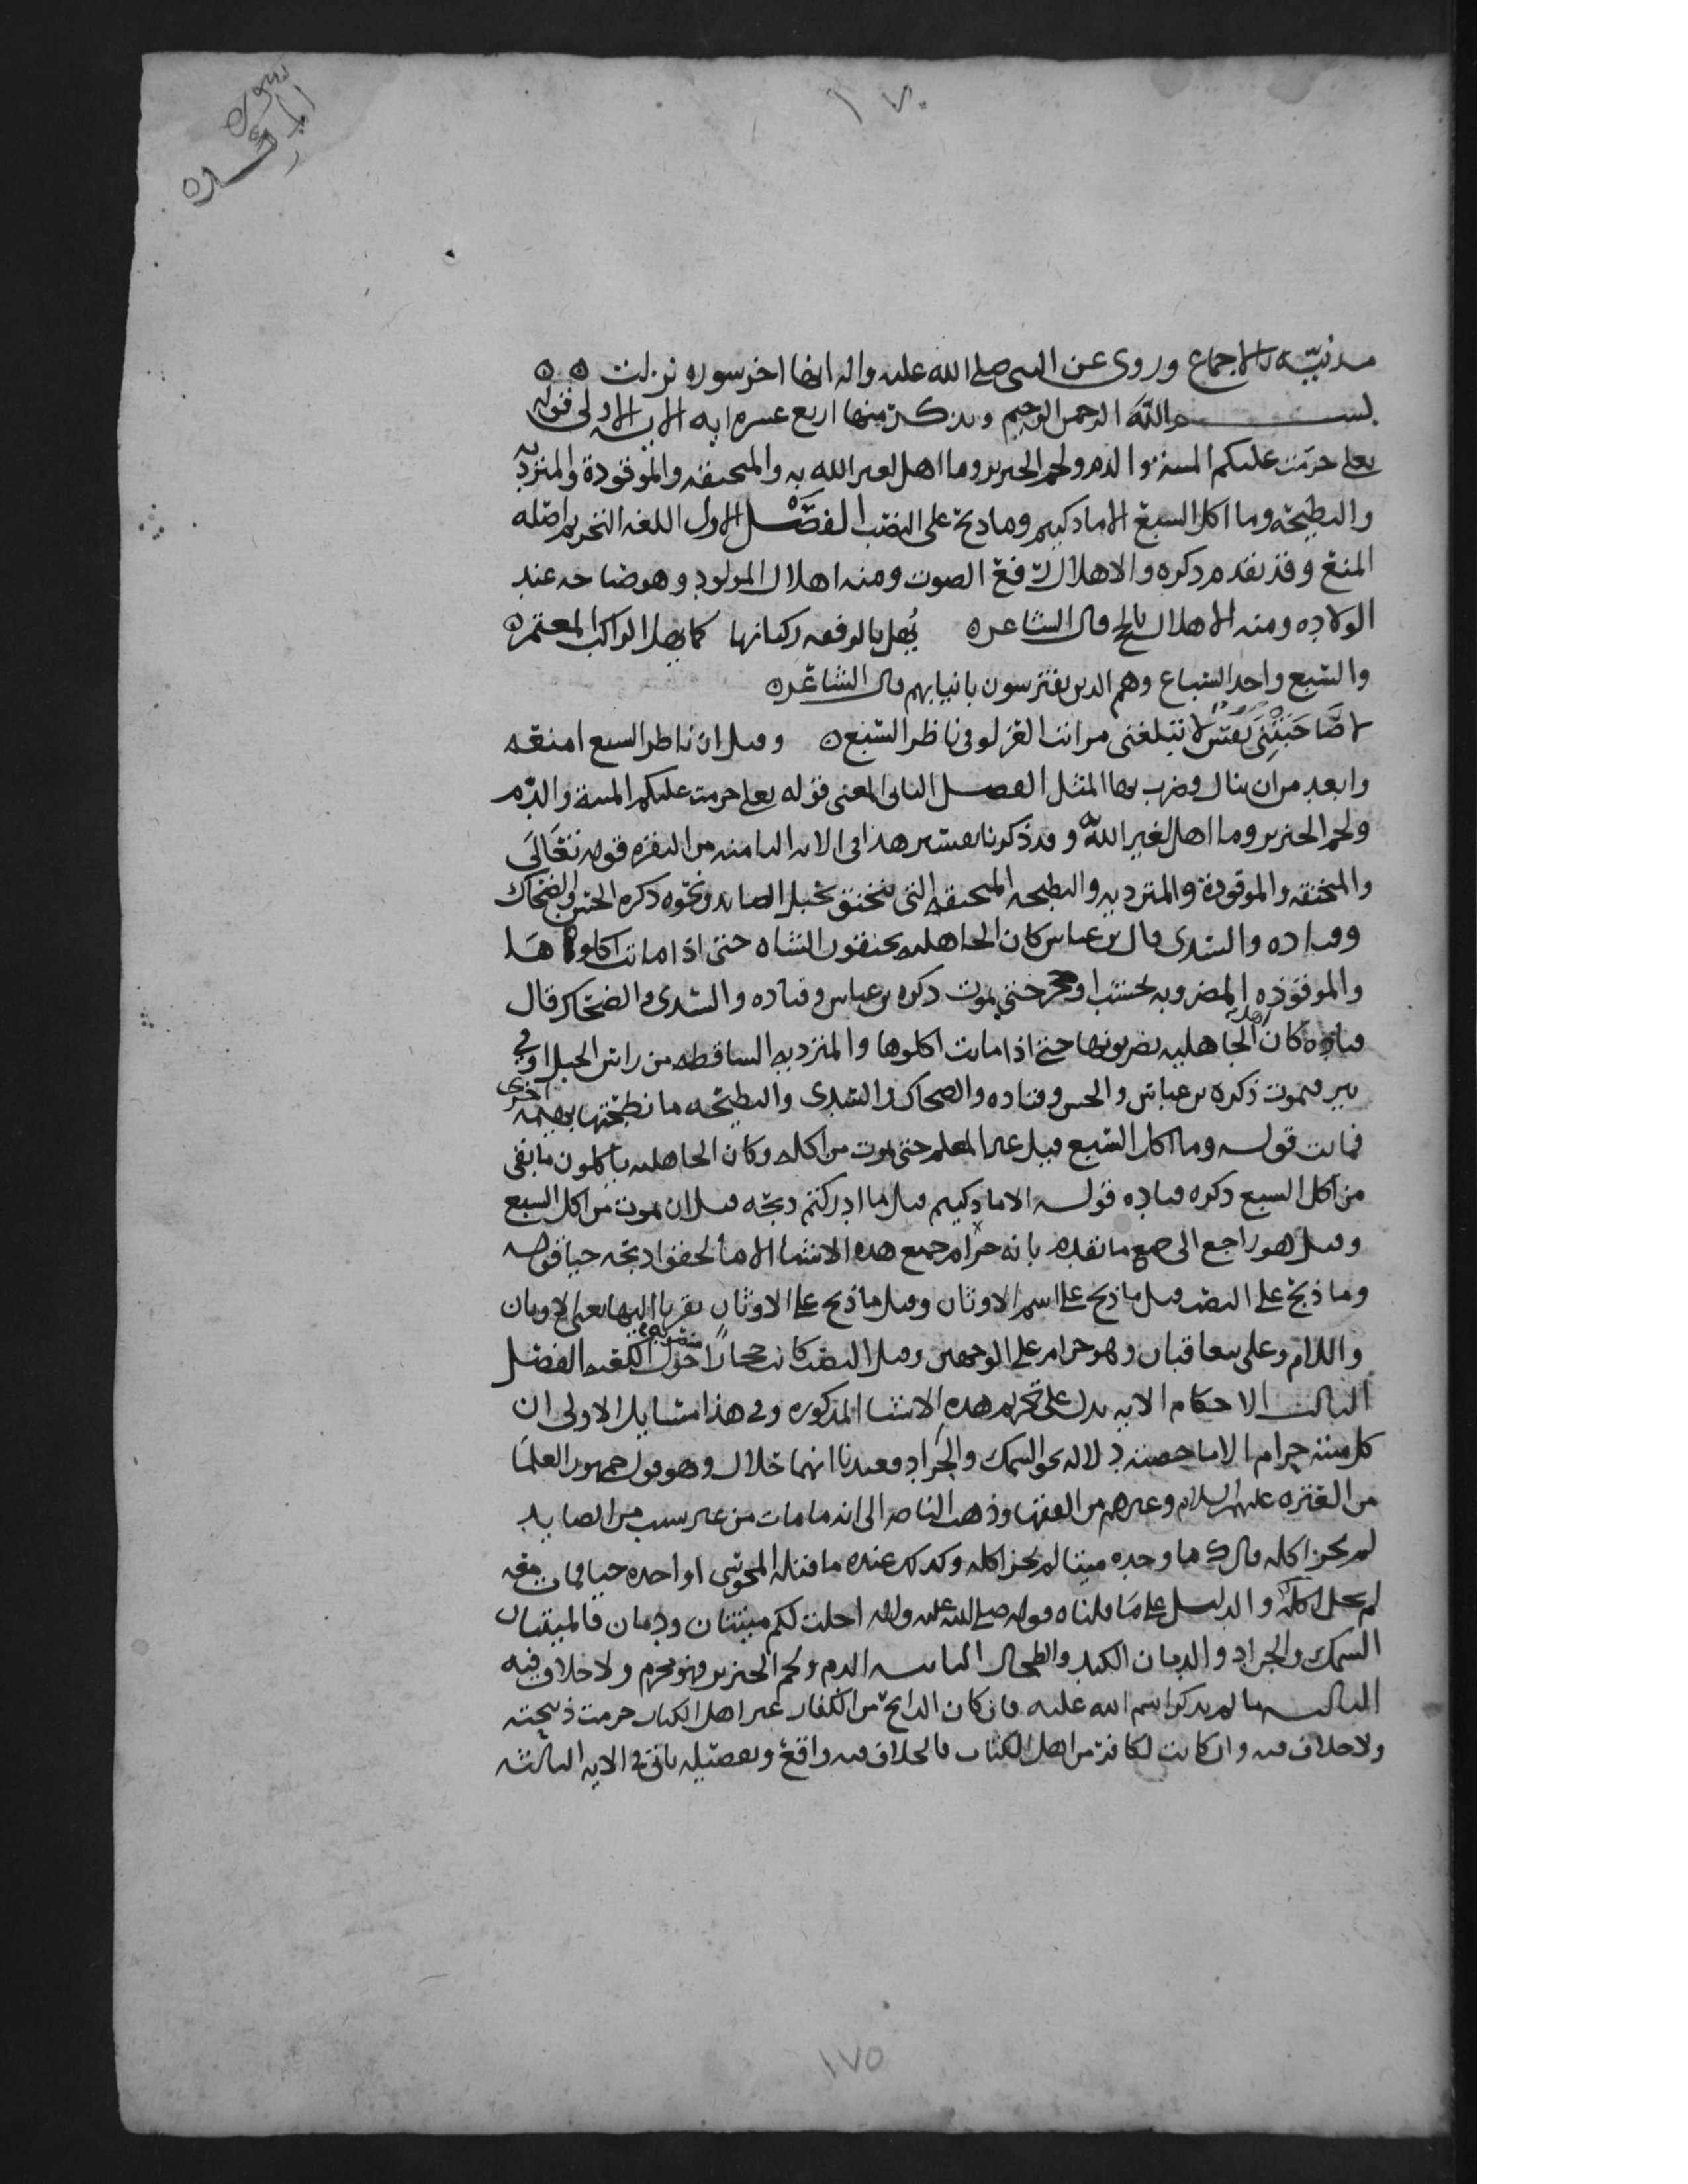 سورة
المائده
١٧٠
مدنيّه بالاجماع وروى عن النبي صلى الله عليه واله انها اخر سوره نزلت ٥ ٥
بسم الله الرحمن الرحيم ونذكر منها اربع عشره ايه الايه الاولى قوله
تعالى حرّمت عليكم الميتة والدم ولحم الخنزير وما اهل لغير الله به والمنخنقه والموقوذة والمتردية
والنطيحة وما اكل السبع الا ما ذكيتم وما ذبح على النصب الفصل الاول اللغه التحريم اصله
المنع وقد تقدم ذكره والاهلال رفع الصوت ومنه اهلال المولود وهو صياحه عند
الولاده ومنه الاهلال بالحج قال الشاعر ٥ يُهل بالفرقد ركبانها كما يهل الراكب المعتمر ٥
والسبع واحد السباع وهم الذين يفترسون بانيابهم قال الشاعر ٥
لا تبلغنى من انت الغزلو فى ناظر السبع ٥ وقيل ان ناظر السبع امنعه
وابعد من ان ينال وضرب بها المثل الفصل الثانى المعنى قوله تعالى حرمت عليكم الميتة والدّم
ولحم الخنزير وما اهل لغير الله وقد ذكرنا تفسير هذا فى الايه الثامنه من البقره قوله تَعَالَى
والمنخنقه والموقوذة والمترديه والنطيحه المنخنقه التى تختنق بحبل الصايد ونحوه ذكره الحسن والضحاك
وقتاده والسدى قال بن عباس كان الجاهليه يخنقون الشاه حتى اذا ماتت اكلوها
والموقوذه المضروبه بخشب او حجر حتى يموت ذكره بن عباس وقتاده والسدى والضحاك قال
قتاده كان اهل الجاهليه يضربونها حتى اذا ماتت اكلوها والمترديه الساقطه من راس الجبل او في
بير فتموت ذكره بن عباس والحسن وقتاده والضحاك والسدى والنطيحه ما نطحتها بهيمه اخرى
فماتت قوله وما اكل السبع قبل غير المعلم حتى يموت من اكله وكان الجاهليه ياكلون ما بقى
من اكل السبع ذكره قتاده قوله الا ما ذكيتم قيل ما ادركتم ذبحه قبل ان يموت من اكل السبع
وقيل هو راجع الى جميع ما تقدم بانه حرام جميع هذه الاشيا الا ما لحقوا ذبحه حيا قوله
وما ذبح على النصب قيل ما ذبح على اسم الاوثان وقيل ما ذبح على الاوثان تقربا اليها يعنى الاوثان
واللام وعلى يتعاقبان وهو حرام على الوجهين وقيل النصب كانت حجارًا منصوبه حول الكعبه الفصل
الثالث الاحكام الايه تدل على تحريم هذه الاشيا المذكوره وفى هذا مسايل الاولى ان
كل ميته حرام الا ما خصته دلاله نحو السمك والجراد وعندنا انهما حلال وهو قول جمهور العلما
من العتره عليهم السلام وغيرهم من الفقها وذهب الناصر الى انه ما مات من غير سبب من الصايد
لم يجز اكله قال ك ما وجده ميتا لم يجز اكله وكذلك عنده ما قتله المجوسى او احده حيا فمات معه
لم يحل اكله والدليل على ما قلناه قوله صلى الله عليه واله احلت لكم ميتتان ودمان فالميتتان
السمك والجراد والدمان الكبد والطحال الثانيه الدم ولحم الخنزير فهو محرم ولا خلاف فيه
الثالثه ما لم يذكر اسم الله عليه فان كان الذابح من الكفار غير اهل الكتاب حرمت ذبيحته
ولا خلاف فيه وان كانت لكافر من اهل الكتاب فالخلاف فيه واقع وتفصيله ياتى فى الايه الثالثه
١٧٥